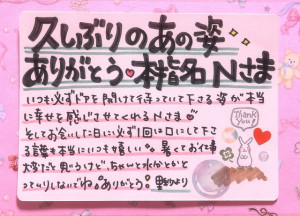 久しぶりのあの姿
ありがとう 本指名 Nさま
いつも必ずドアを開けて待っていて下さる姿が本当
に幸せを感じさせてくれるNさま
そしてお会いした日に必ず1回は口にして下さ
る言葉も本当にいつも嬉しい。暑くてお仕事
大変だと思うけど、ちゃんと水分とか
ってムリしないでね。ありがとう!
より
Thank You!